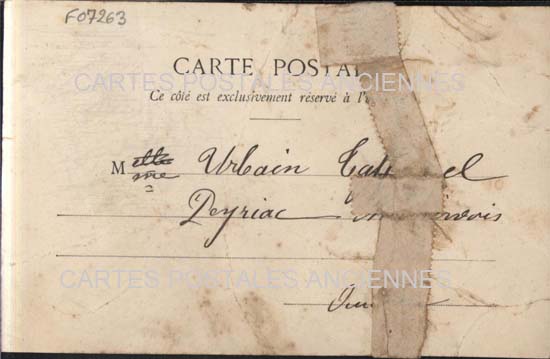 F07263
CARTE POSTA
CARTES POSTALES ANCIENNES
Ce côté est exclusivement réservé à l'
M elle
me Urbain
Peyriac
CARTES POSTALES ANCIENNES